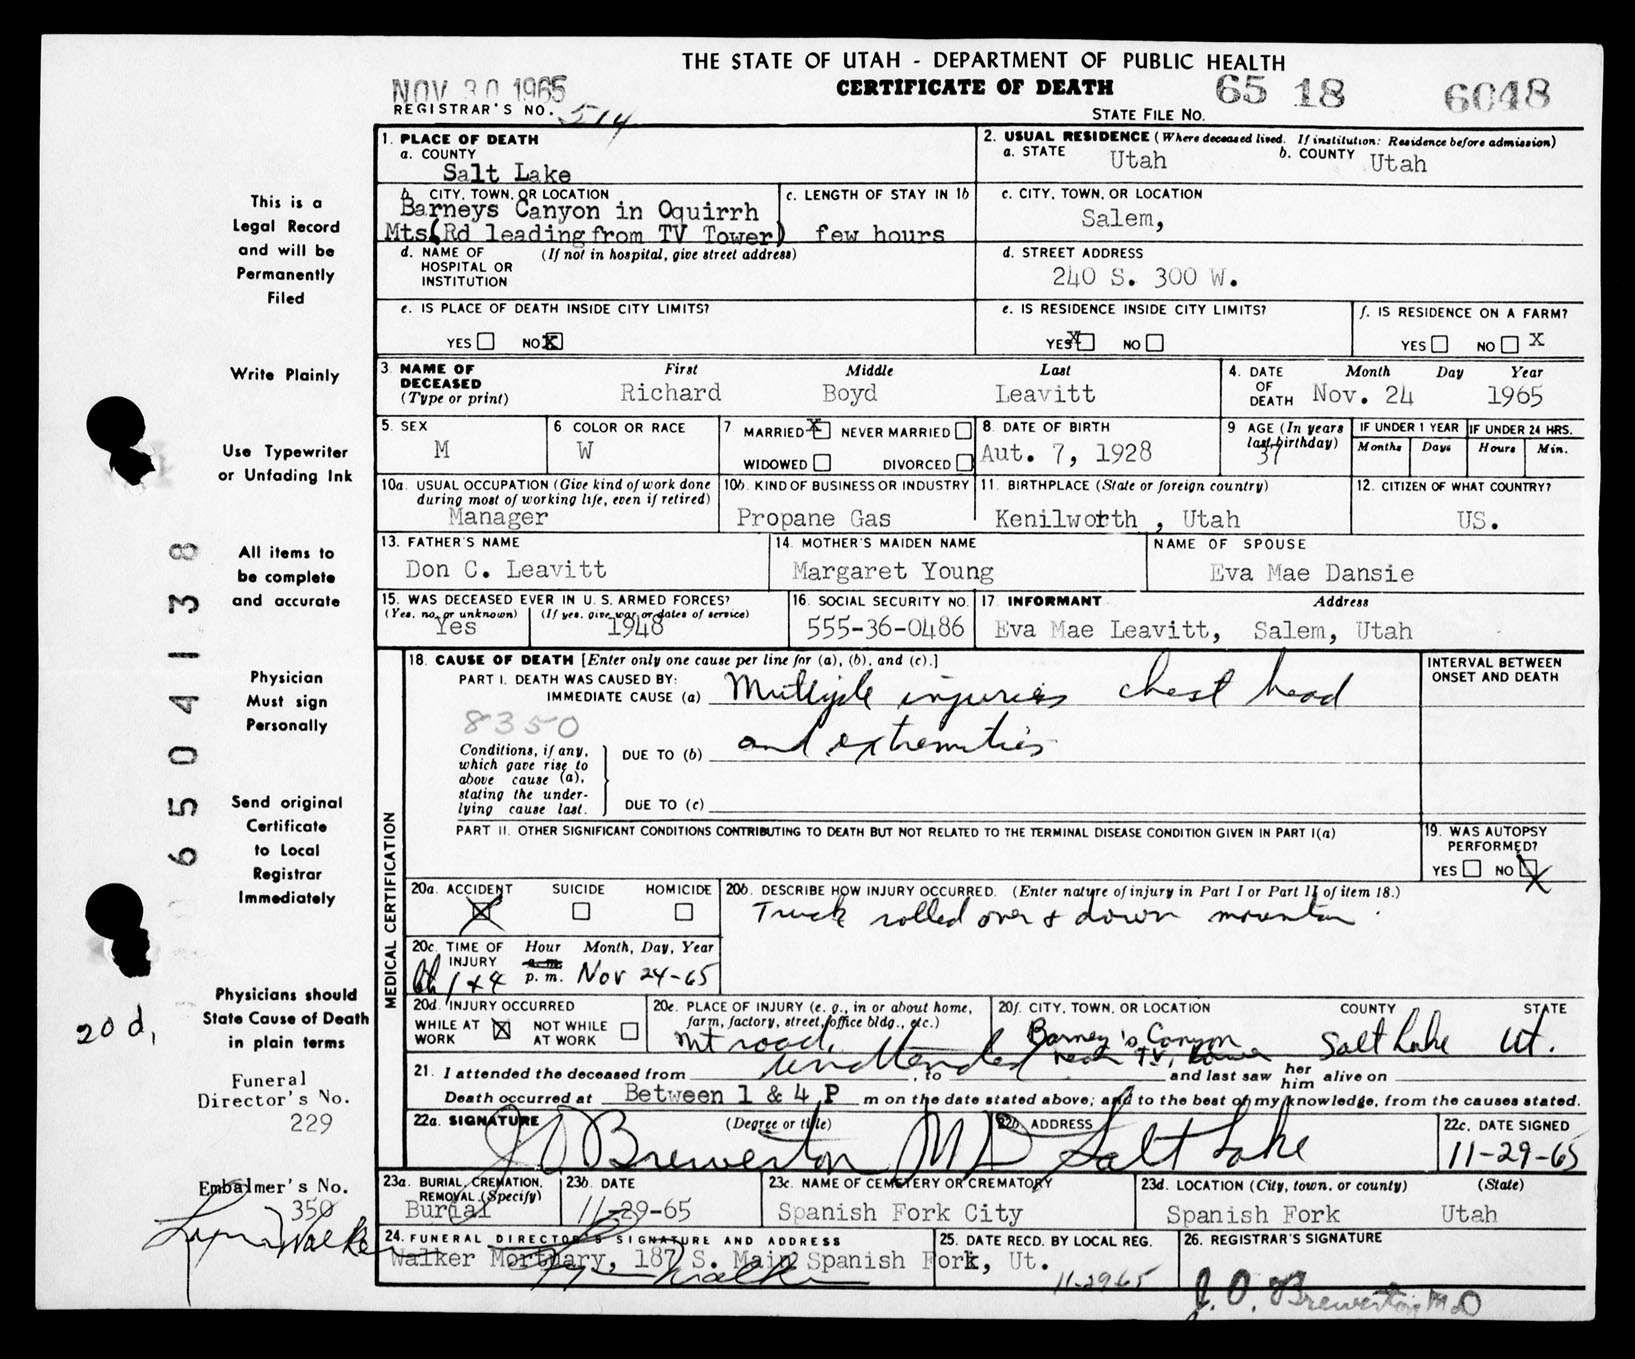 THE STATE OF UTAH - DEPARTMENT OF PUBLIC HEALTH
CERTIFICATE OF DEATH
NOV 30 1965
REGISTRAR'S NO. 514
STATE FILE NO. 65 18 6048
This is a
Legal Record
and will be
Permanently
Filed
Write Plainly
Use Typewriter
or Unfading Ink
All items to
be complete
and accurate
Physician
Must sign
Personally
Send original
Certificate
to Local
Registrar
Immediately
Physicians should
State Cause of Death
in plain terms
Funeral
Director's No.
229
Embalmer's No.
350
Lynn Walker
20 d,
06504138
1. PLACE OF DEATH
a. COUNTY
Salt Lake
b. CITY, TOWN, OR LOCATION
Barneys Canyon in Oquirrh
Mts(Rd leading from TV Tower)
c. LENGTH OF STAY IN 1b
few hours
d. NAME OF HOSPITAL OR INSTITUTION (If not in hospital, give street address)
e. IS PLACE OF DEATH INSIDE CITY LIMITS?
YES NO X
2. USUAL RESIDENCE (Where deceased lived. If institution: Residence before admission)
a. STATE Utah
b. COUNTY Utah
c. CITY, TOWN, OR LOCATION
Salem,
d. STREET ADDRESS
240 S. 300 W.
e. IS RESIDENCE INSIDE CITY LIMITS?
YES X NO
f. IS RESIDENCE ON A FARM?
YES NO X
3. NAME OF DECEASED (Type or print)
First Middle Last
Richard Boyd Leavitt
4. DATE OF DEATH Month Day Year
Nov. 24 1965
5. SEX
M
6 COLOR OR RACE
W
7 MARRIED X NEVER MARRIED
WIDOWED DIVORCED
8. DATE OF BIRTH
Aut. 7, 1928
9 AGE (In years last birthday)
37
IF UNDER 1 YEAR
Months Days
IF UNDER 24 HRS.
Hours Min.
10a. USUAL OCCUPATION (Give kind of work done during most of working life, even if retired)
Manager
10b. KIND OF BUSINESS OR INDUSTRY
Propane Gas
11. BIRTHPLACE (State or foreign country)
Kenilworth , Utah
12. CITIZEN OF WHAT COUNTRY?
US.
13. FATHER'S NAME
Don C. Leavitt
14. MOTHER'S MAIDEN NAME
Margaret Young
NAME OF SPOUSE
Eva Mae Dansie
15. WAS DECEASED EVER IN U. S. ARMED FORCES?
(Yes, no, or unknown) (If yes, give war or dates of service)
Yes 1948
16. SOCIAL SECURITY NO.
555-36-0486
17. INFORMANT Address
Eva Mae Leavitt, Salem, Utah
MEDICAL CERTIFICATION
18. CAUSE OF DEATH [Enter only one cause per line for (a), (b), and (c).]
PART I. DEATH WAS CAUSED BY:
IMMEDIATE CAUSE (a) Multiple injuries chest head
8350
Conditions, if any, which gave rise to above cause (a), stating the underlying cause last.
DUE TO (b) and extremities
DUE TO (c)
INTERVAL BETWEEN ONSET AND DEATH
PART II. OTHER SIGNIFICANT CONDITIONS CONTRIBUTING TO DEATH BUT NOT RELATED TO THE TERMINAL DISEASE CONDITION GIVEN IN PART I(a)
19. WAS AUTOPSY PERFORMED?
YES NO X
20a. ACCIDENT SUICIDE HOMICIDE
X
20b. DESCRIBE HOW INJURY OCCURRED. (Enter nature of injury in Part I or Part II of item 18.)
Truck rolled over & down mountain.
20c. TIME OF INJURY Hour Month, Day, Year
1 & 4 a.m. p.m. Nov 24-65
20d. INJURY OCCURRED
WHILE AT WORK X NOT WHILE AT WORK
20e. PLACE OF INJURY (e. g., in or about home, farm, factory, street, office bldg., etc.)
Mt road,
20f. CITY, TOWN, OR LOCATION COUNTY STATE
Barney's Canyon Salt Lake Ut.
near TV, tower
21. I attended the deceased from unattended, to and last saw her him alive on
Death occurred at Between 1 & 4 P m on the date stated above; and to the best of my knowledge, from the causes stated.
22a. SIGNATURE (Degree or title)
J O Brewerton MD
22b. ADDRESS
Salt Lake
22c. DATE SIGNED
11-29-65
23a. BURIAL, CREMATION, REMOVAL (Specify)
Burial
23b. DATE
11-29-65
23c. NAME OF CEMETERY OR CREMATORY
Spanish Fork City
23d. LOCATION (City, town, or county) (State)
Spanish Fork Utah
24. FUNERAL DIRECTOR'S SIGNATURE AND ADDRESS
Walker Mortuary, 187 S. Main Spanish Fork, Ut.
Lynn Walker
25. DATE RECD. BY LOCAL REG.
11-29 65
26. REGISTRAR'S SIGNATURE
J. O. Brewerton MD